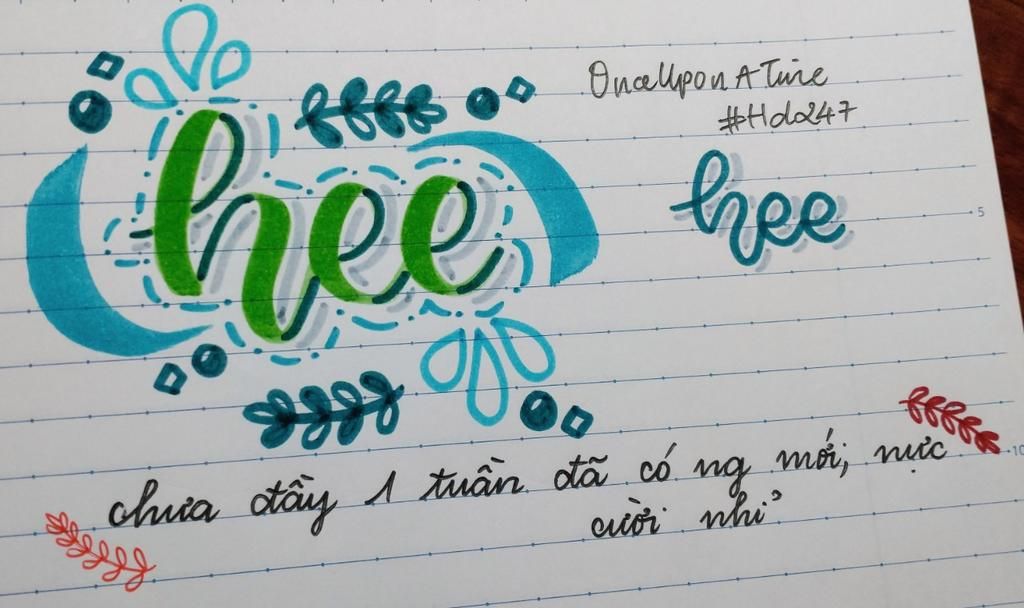 hee
OnceUpon A Time
#Hdo247
hee
5
10
chưa đầy 1 tuần đã có ng mới, nực
cười nhỉ